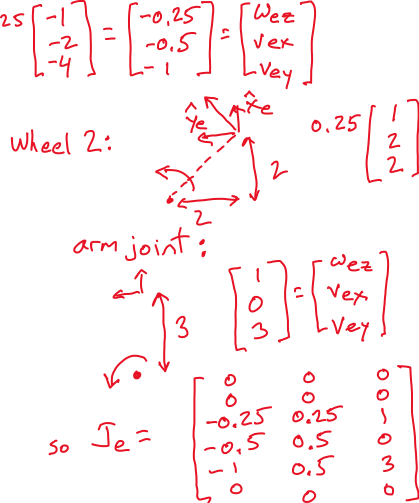 25 [-1 -2 -4] = [-0.25 -0.5 -1] = [ωez vex vey]
Wheel 2:
ŷe x̂e
0.25 [1 2 2]
2
2
arm joint:
3
[1 0 3] = [ωez vex vey]
so Je = [0 0 0
0 0 0
-0.25 0.25 1
-0.5 0.5 0
-1 0.5 3
0 0 0]